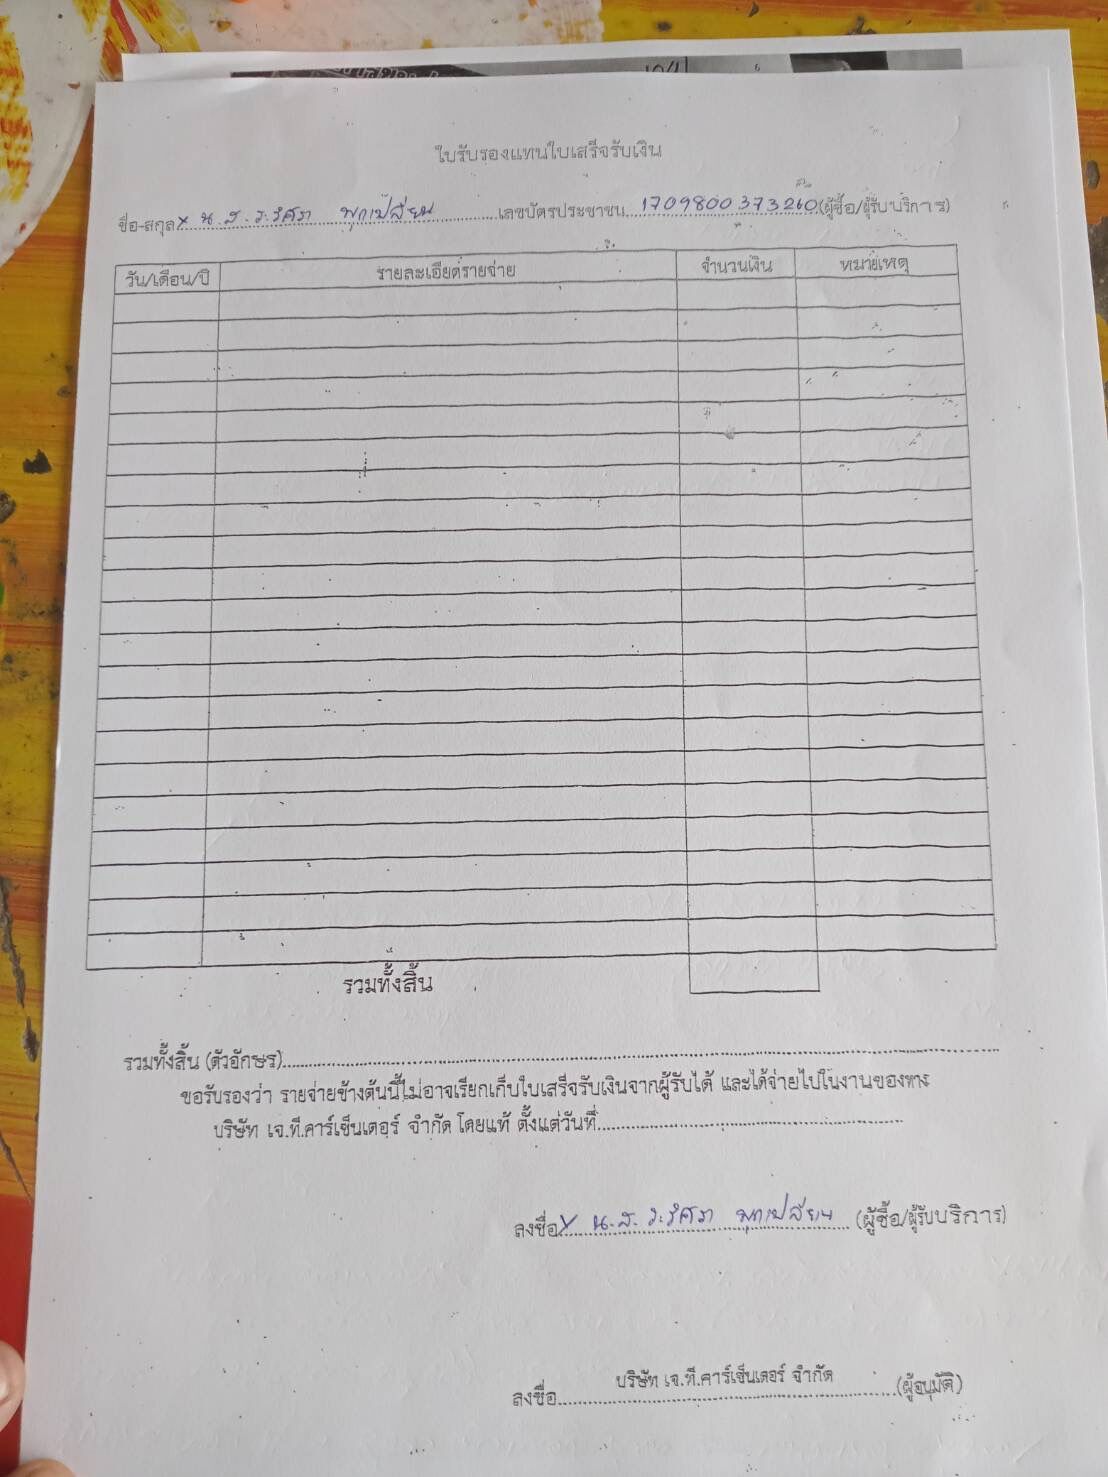 ใบรับรองแทนใบเสร็จรับเงิน
ชื่อ-สกุล x น.ส. วริศรา พุกเปลี่ยน เลขบัตรประชาชน 1709800373260 (ผู้ซื้อ/ผู้รับบริการ)
วัน/เดือน/ปี รายละเอียดรายจ่าย จำนวนเงิน หมายเหตุ
รวมทั้งสิ้น
รวมทั้งสิ้น (ตัวอักษร)
ขอรับรองว่า รายจ่ายข้างต้นนี้ไม่อาจเรียกเก็บใบเสร็จรับเงินจากผู้รับได้ และได้จ่ายไปในงานของทาง
บริษัท เจ.ที.คาร์เซ็นเตอร์ จำกัด โดยแท้ ตั้งแต่วันที่
ลงชื่อ x น.ส. วริศรา พุกเปลี่ยน (ผู้ซื้อ/ผู้รับบริการ)
บริษัท เจ.ที.คาร์เซ็นเตอร์ จำกัด
ลงชื่อ (ผู้อนุมัติ)